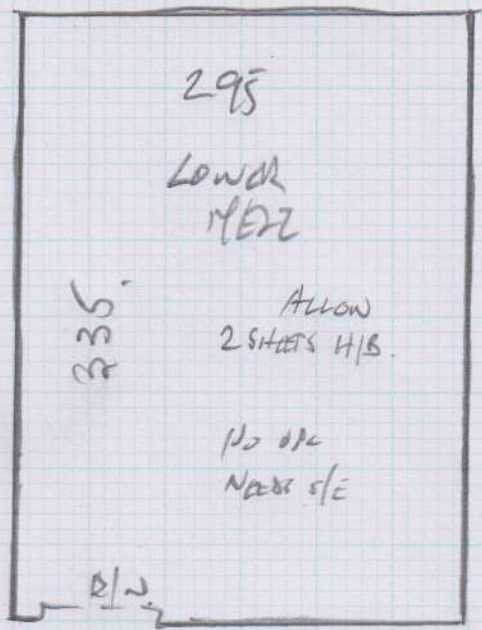 295
LOWER
MEZZ
335.
ALLOW
2 SHEETS H/B.
NO
NEEDS S/E